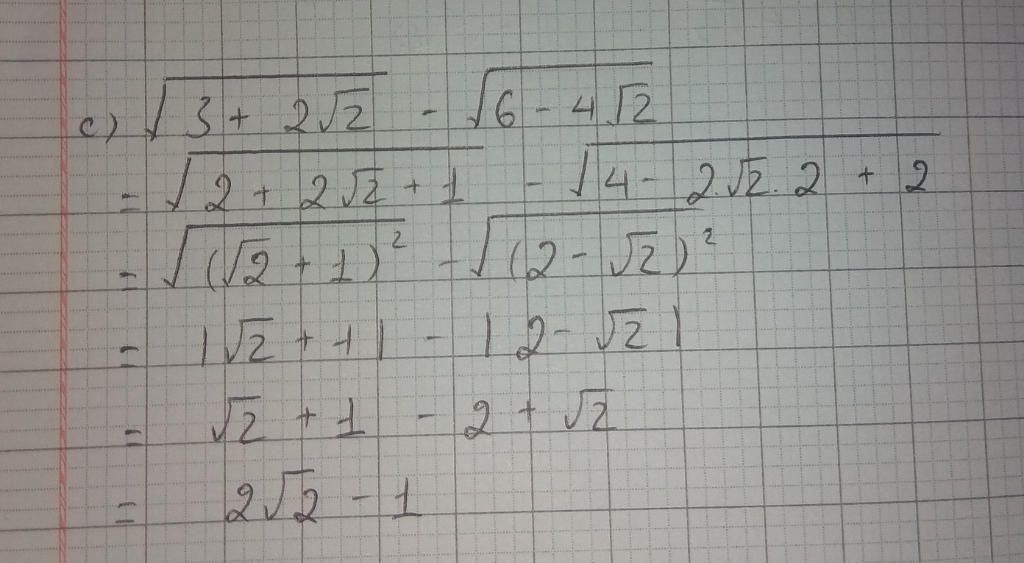 c) √(3 + 2√2) - √(6 - 4√2)
= √(2 + 2√2 + 1) - √(4 - 2√2 . 2 + 2)
= √((√2 + 1)²) - √((2 - √2)²)
= |√2 + 1| - |2 - √2|
= √2 + 1 - 2 + √2
= 2√2 - 1